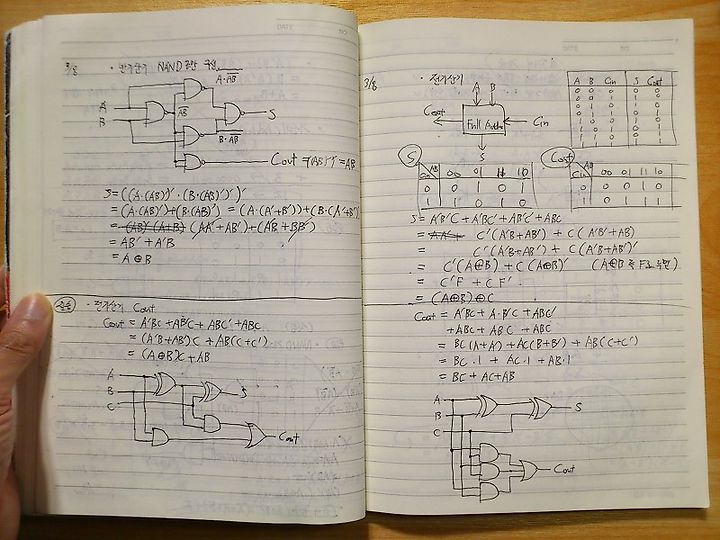 3/8 · 반가산기 NAND로만 구성
(A·(AB)')'
A
B
(AB)'
S
(B·(AB)')'
Cout = ((AB)')' = AB
S = ((A·(AB)')'·(B·(AB)')')'
= (A·(AB)')+(B·(AB)') = (A·(A'+B'))+(B·(A'+B'))
= (AA'+AB')+(A'B+BB')
= AB'+A'B
= A⊕B
· 전가산기 Cout
Cout = A'BC+AB'C+ABC'+ABC
= (A'B+AB')C+AB(C+C')
= (A⊕B)C+AB
A
B
C
S
Cout
3/8 · 전가산기
A B
Cout Full Adder Cin
S
A B Cin S Cout
0 0 0 0 0
0 0 1 1 0
0 1 0 1 0
0 1 1 0 1
1 0 0 1 0
1 0 1 0 1
1 1 0 0 1
1 1 1 1 1
S
AB
00 01 11 10
0 0 1 0 1
1 1 0 1 0
Cout
AB
Cin 00 01 11 10
0 0 0 1 0
1 0 1 1 1
S = A'B'C+A'BC'+AB'C'+ABC
= C'(A'B+AB')+C(A'B'+AB)
= C'(A'B+AB')+C(A'B+AB')'
= C'(A⊕B)+C(A⊕B)' (A⊕B 를 F로 치환)
= C'F+CF'
= (A⊕B)⊕C
Cout = A'BC+AB'C+ABC'
+ABC+ABC+ABC
= BC(A+A')+AC(B+B')+AB(C+C')
= BC·1+AC·1+AB·1
= BC+AC+AB
A
B
C
S
Cout